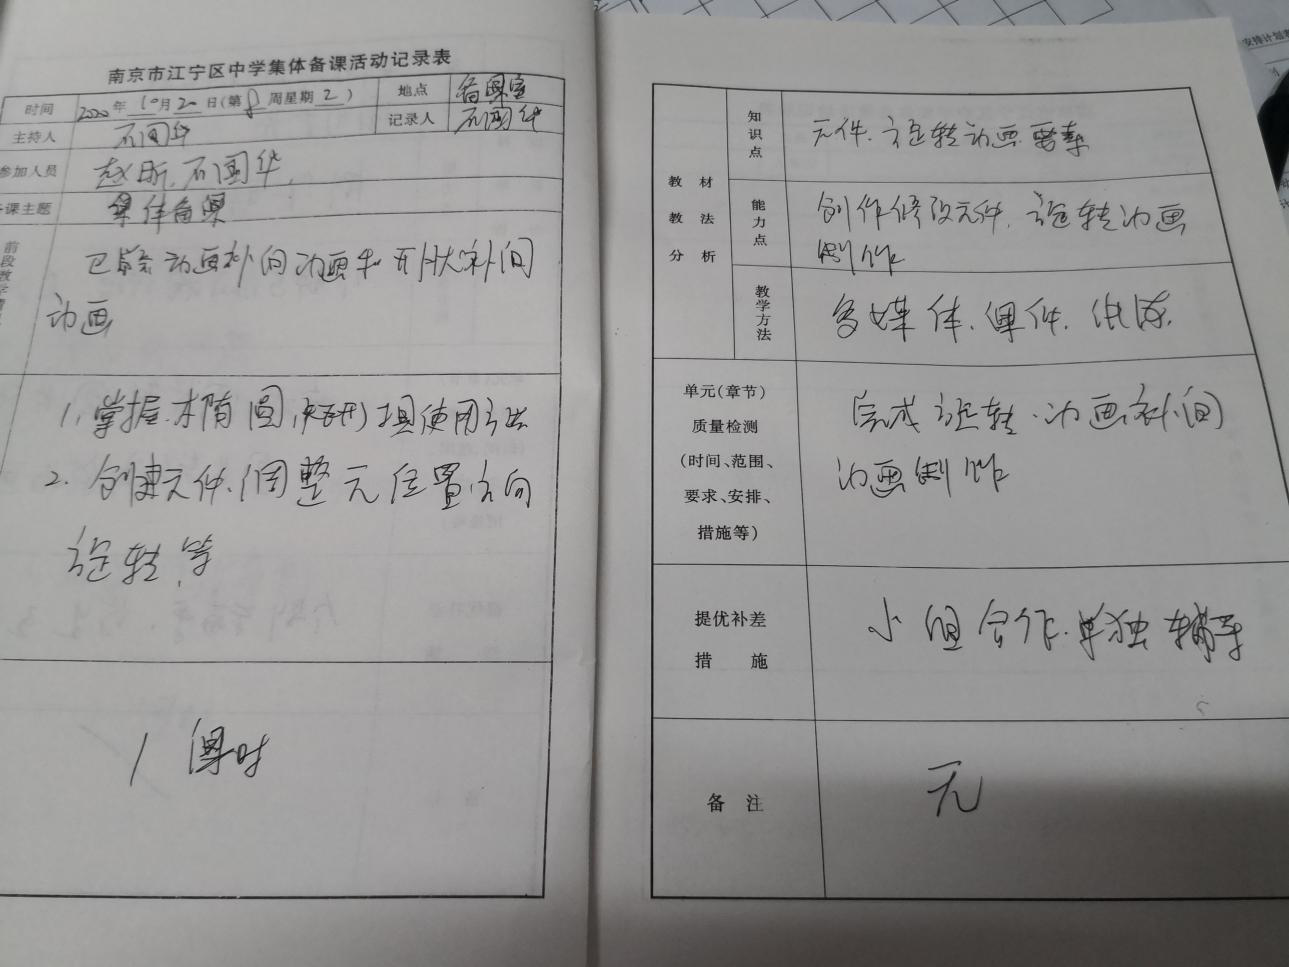 南京市江宁区中学集体备课活动记录表
时间 2020年10月20日(第8周星期2) 地点 备课室
主持人 石国华 记录人 石国华
参加人员 赵昕、石国华
课主题 集体备课
前段教学情
已学会动画补间动画和形状补间
动画
1、掌握椭圆、矩形工具使用方法
2、创建元件、调整元位置方向
旋转等
1课时
教材教法分析
知识点 元件、旋转动画
能力点 创作修改元件、旋转动画
制作
教学方法 多媒体、课件、
单元(章节)
质量检测
(时间、范围、
要求、安排、
措施等)
完成旋转、动画补间
动画制作
提优补差
措施
小组合作、单独辅导
备注 无
安排计划